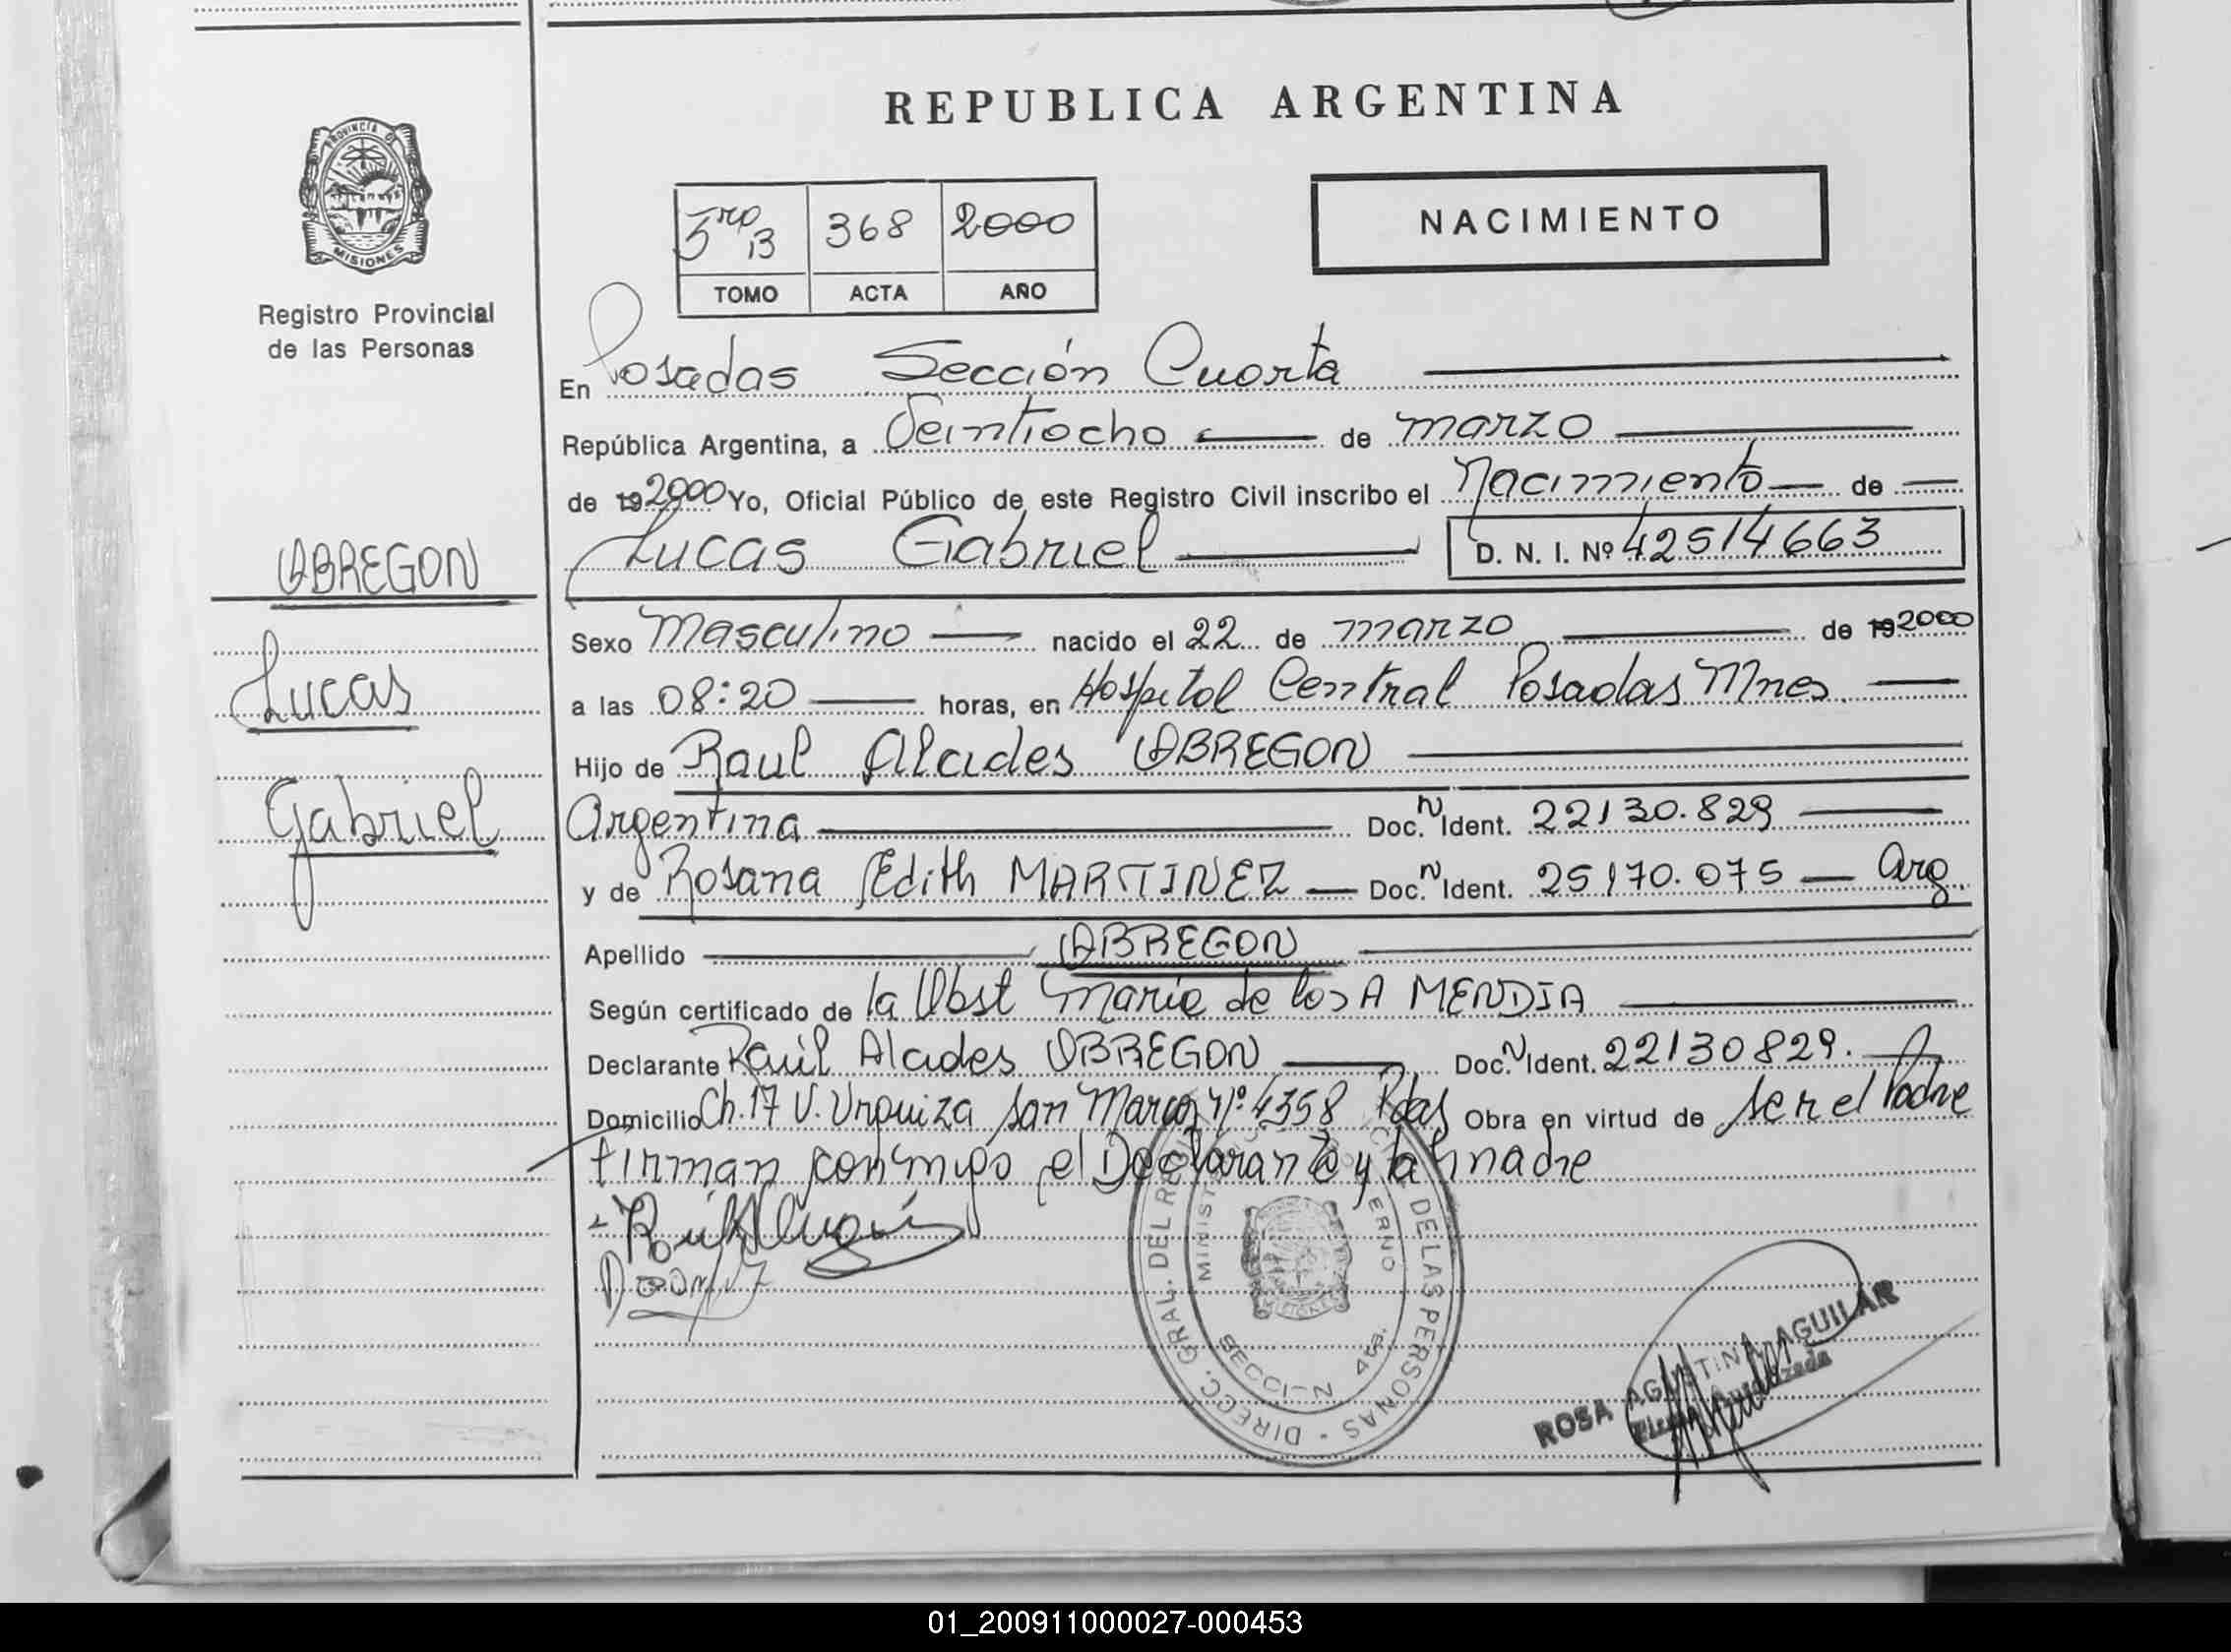 REPUBLICA ARGENTINA
PROVINCIA DE
MISIONES
Registro Provincial
de las Personas
368 2000
TOMO ACTA AÑO
NACIMIENTO
En Posadas Sección Cuarta
República Argentina, a Veintiocho de marzo
de 19 2000 Yo, Oficial Público de este Registro Civil inscribo el Nacimiento de
ABREGON
Lucas Gabriel D. N. I. Nº 42514663
Sexo Masculino nacido el 22 de marzo de 19 2000
Lucas
a las 08:20 horas, en Hospital Central Posadas Mnes.
Hijo de Raul Alcides OBREGON
Gabriel
Argentina Doc. N Ident. 22130.829
y de Rosana Edith MARTINEZ Doc. N Ident. 25170.075 Arg.
Apellido OBREGON
Según certificado de la Obst Maria de los A MENDIA
Declarante Raúl Alcides OBREGON Doc. N Ident. 22130829.
Domicilio Ch. 17 V. Urquiza San Marcos Nº 4358 Pdas Obra en virtud de ser el Padre
firman conmigo el Declarante y la madre
DIREC. GRAL. DEL REGISTRO DE LAS PERSONAS
SECCION 4ta.
ROSA AGUSTINA AGUILAR
01_200911000027-000453